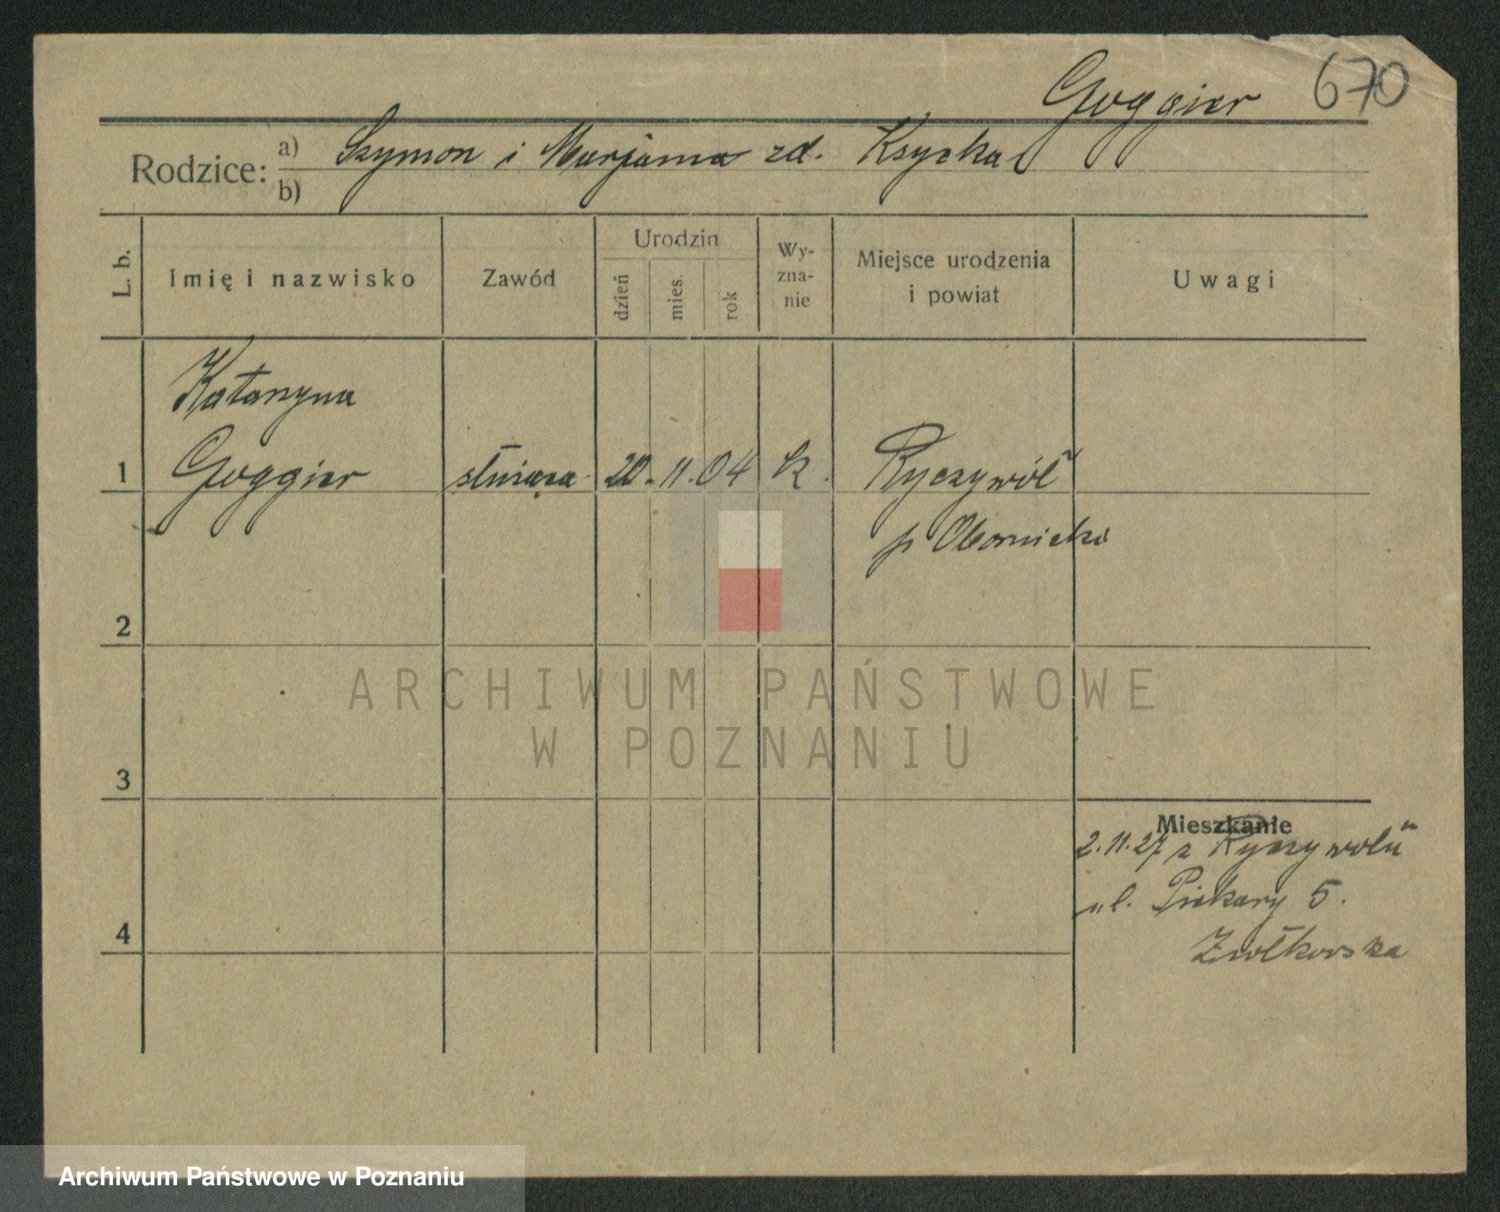 Goggier 670
Rodzice: a) Szymon i Marjanna zd. Ksycka
b)
L. b. Imię i nazwisko Zawód Urodzin dzień mies. rok Wyznanie Miejsce urodzenia i powiat Uwagi
Katarzyna
1 Goggier służąca 20. 11. 04 k. Ryczywół
p Obornicki
2
ARCHIWUM PAŃSTWOWE
W POZNANIU
3
Mieszkanie
2.11.27 z Ryczywołu
ul. Piekary 5.
4 Ziołkowska
Archiwum Państwowe w Poznaniu